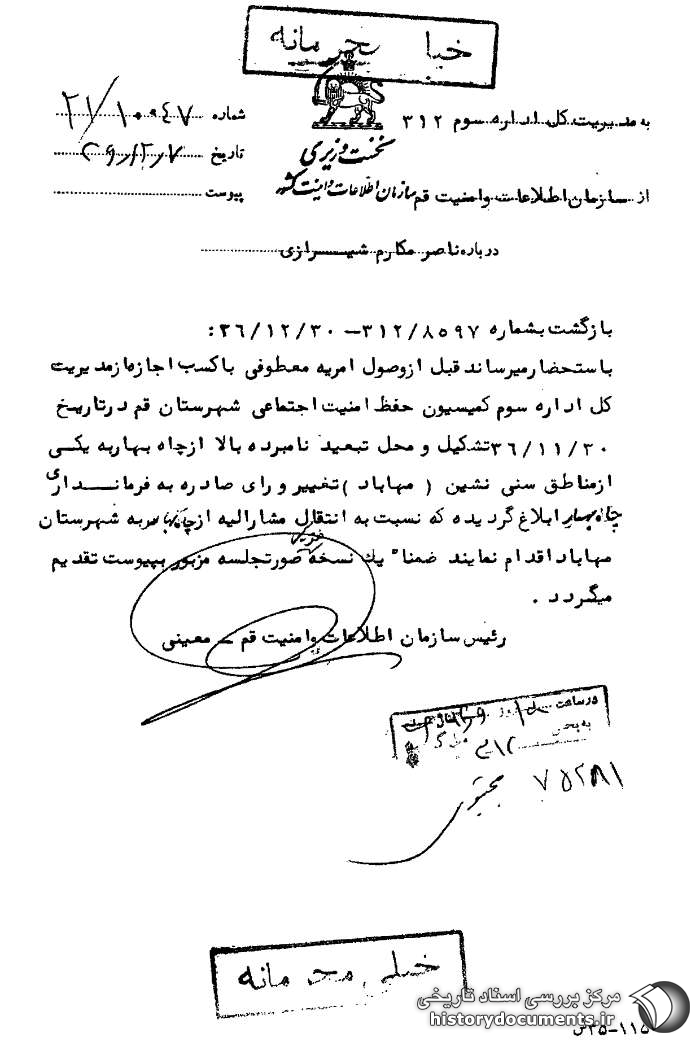 خیلی محرمانه
به مدیریت کل اداره سوم ۳۱۲
شماره ۲۱/۱۰۹۴۷
نخست وزیری
تاریخ
سازمان اطلاعات و امنیت کشور
از سازمان اطلاعات و امنیت قم
پیوست
درباره ناصر مکارم شیرازی
بازگشت بشماره ۳۱۲/۸۵۹۷ – ۳۶/۱۲/۳۰ :
باستحضار میرساند قبل از وصول امریه معطوفی با کسب اجازه از مدیریت
کل اداره سوم کمیسیون حفظ امنیت اجتماعی شهرستان قم در تاریخ
۳۶/۱۱/۳۰ تشکیل و محل تبعید نامبرده بالا از چاه بهار به یکی
از مناطق سنی نشین ( مهاباد ) تغییر و رای صادره به فرمانداری
چاه بهار ابلاغ گردیده که نسبت به انتقال مشارالیه از چاه بهار به شهرستان
مهاباد اقدام نمایند ضمنا" یک نسخه صورتجلسه مزبور بپیوست تقدیم
میگردد .
رئیس سازمان اطلاعات و امنیت قم – معینی
در ساعت روز
به بخش ۳۱۲
۷۵۲۸۱
خیلی محرمانه
مرکز بررسی اسناد تاریخی
historydocuments.ir
۱۱۵-۳۵س